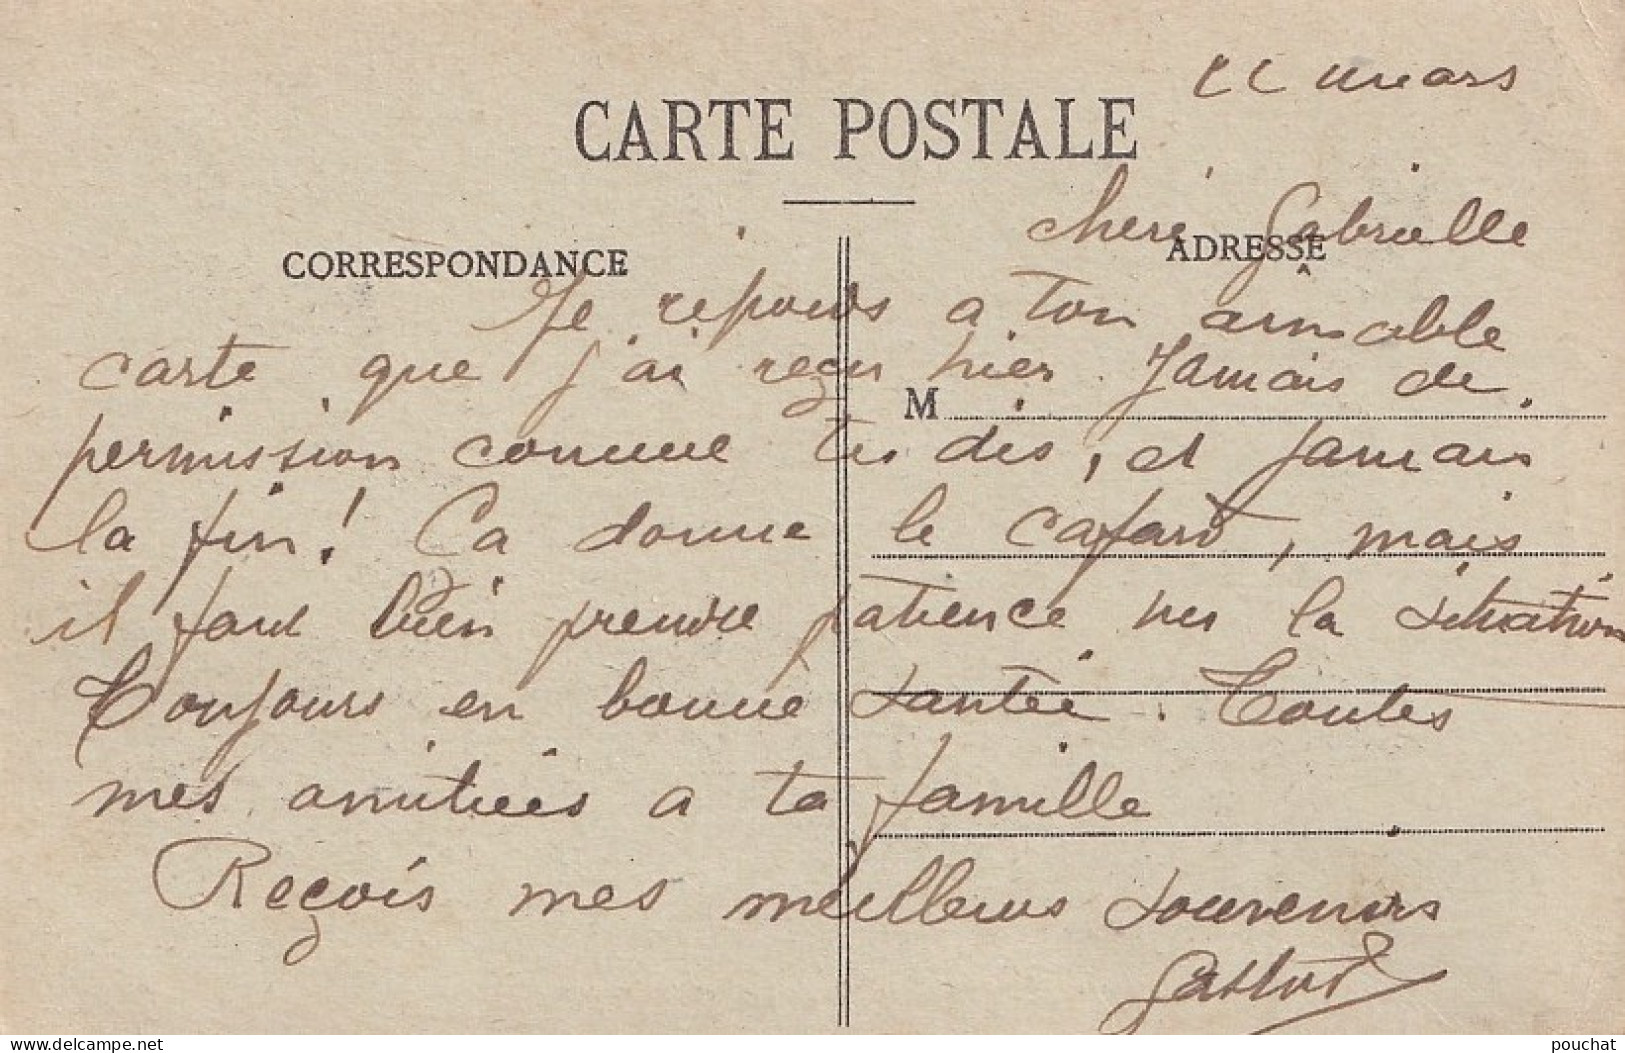 22 mars
CARTE POSTALE
CORRESPONDANCE
ADRESSE
chère Gabrielle
Je réponds a ton aimable
carte que j'ai reçu hier. Jamais de
M
permission comme tu dis, et jamais
la fin! Ca donne le cafard, mais
il faut bien prendre patience vu la situation
Toujours en bonne santée. Toutes
mes amitiées a ta famille
Reçois mes meilleurs souvenirs
pouchat